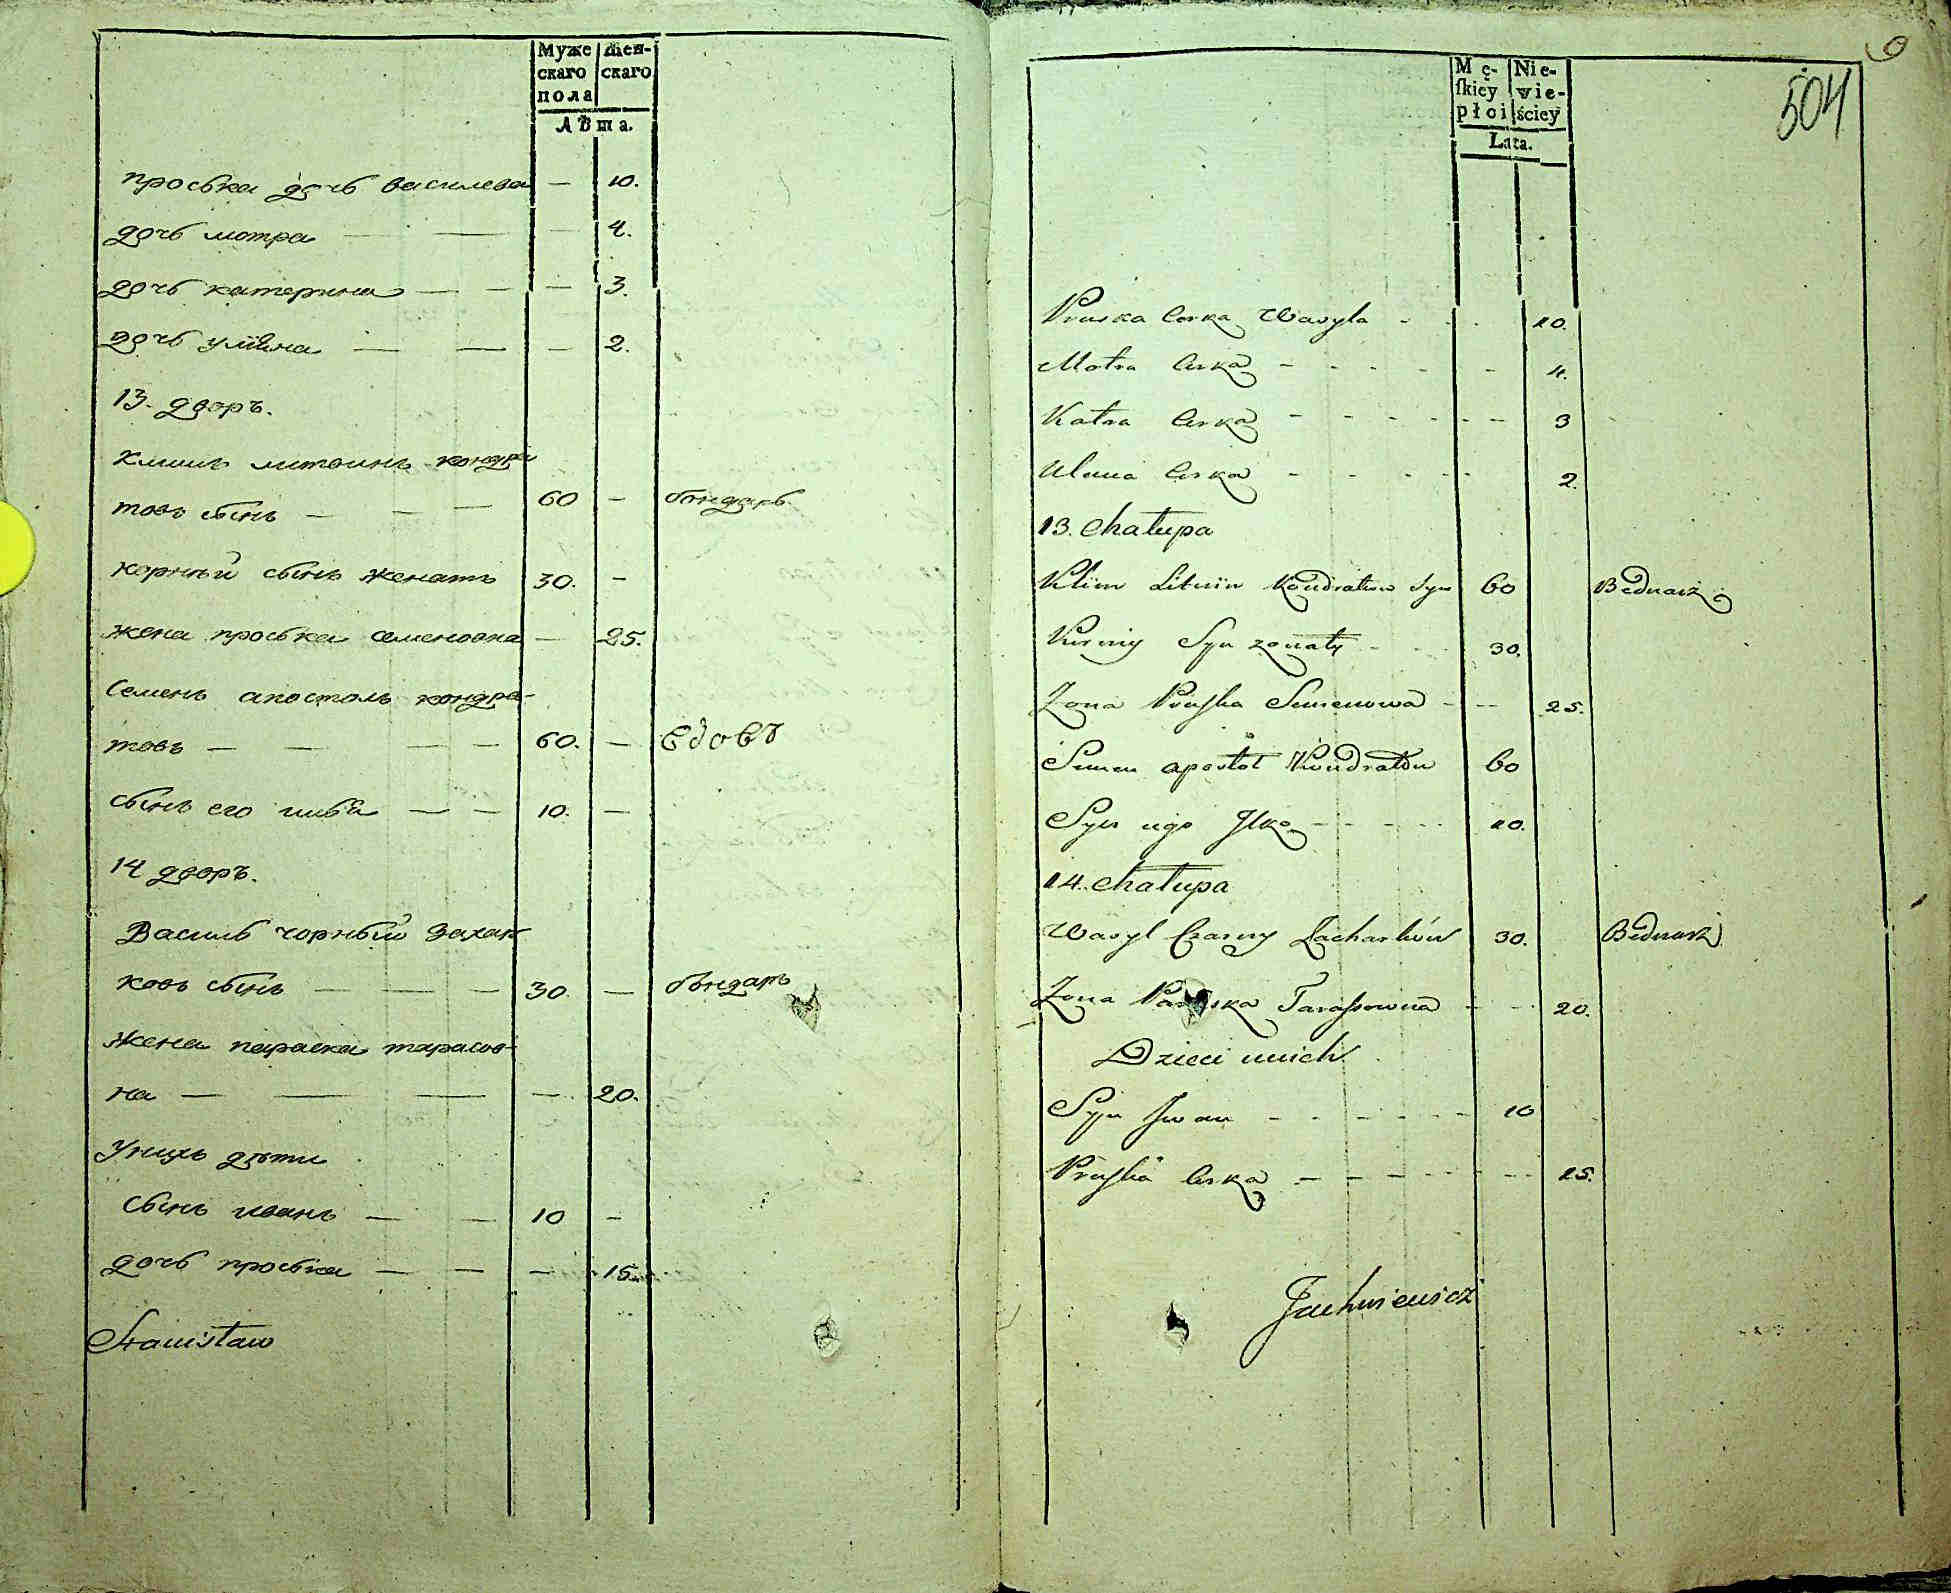 Муже
скаго
пола
Жен-
скаго
Лѣта.
проська дочь василева — 10.
дочь мотра — — — 4.
дочь катерина — — — 3.
дочь улїяна — — — 2.
13. дворъ.
климъ литвинъ кондра
товъ сынъ — — — 60 — бондарь
корнѣй сынъ женатъ 30. —
жена проська семеновна — 25.
Семенъ апостолъ кондра-
товъ — — — — 60. — вдовъ
сынъ его илья — — 10. —
14 дворъ.
Василь чорный захар
ковъ сынъ — — — 30. — бондарь
жена параска тарасов-
на — — — — 20.
Унихъ дѣти
сынъ иванъ — — 10 —
дочь проська — — — 15.
Stanisław
504
Mę-
ſkiey
płci
Nie-
wie-
ściey
Lata.
Pruska Corka Wasyla - - - 10.
Motra Corka - - - - - 4.
Katra Corka - - - - - - 3
Ulana Corka - - - - - 2.
13. Chałupa
Klim Litwin Kondratow Syn 60 Bednarz
Kirniy Syn żonaty - - 30.
Zona Pruska Semenowa - -- 25.
Semen apostoł Kondratow 60
Syn iego Ilko - - - - - 10.
14. Chałupa
Wasyl Czarny Zacharkow 30. Bednarz
Zona Paraska Tarassowna - - 20.
Dzieci unich
Syn Iwan - - - - - - 10
Pruska Corka - - - - - - 15.
Jachniewicz